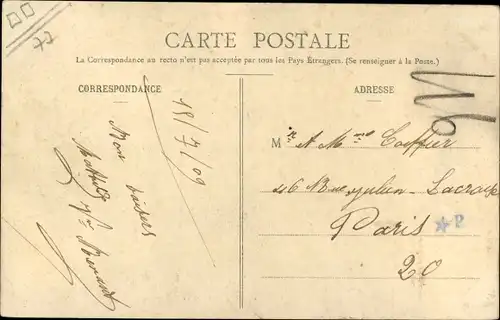 77
CARTE POSTALE
La Correspondance au recto n'est pas acceptée par tous les Pays Étrangers. (Se renseigner à la Poste.)
CORRESPONDANCE
18/7/09
Mon baisers
ADRESSE
Mr et Mme Coiffier
46 Rue Julien Lacroix
Paris
20